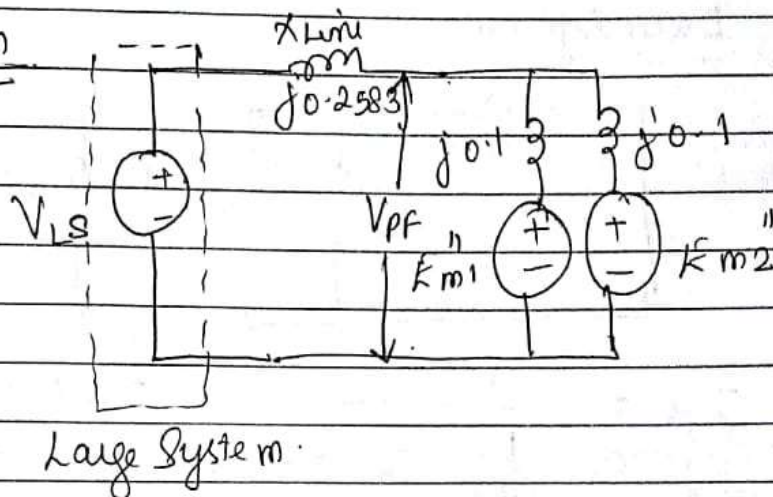 XLine
j0.2583
j0.1
j0.1
+
-
VLS
VPF
E"m1
+
-
+
-
E"m2
Large System.